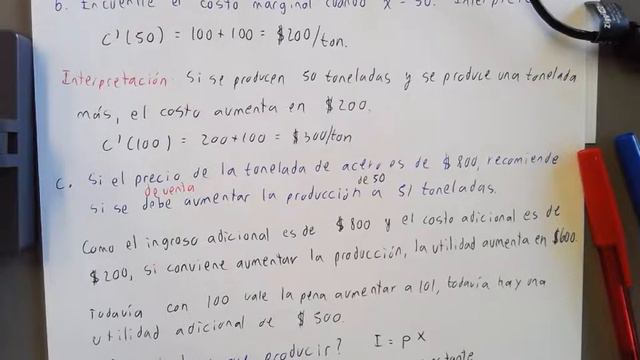 b. Encuentre el costo marginal cuando x = 50.
C'(50) = 100 + 100 = $200/ton.
Interpretación: Si se producen 50 toneladas y se produce una tonelada
más, el costo aumenta en $200.
C'(100) = 200 + 100 = $300/ton
c. Si el precio de venta de la tonelada de acero es de $800, recomiende
si se debe aumentar la producción de 50 a 51 toneladas.
Como el ingreso adicional es de $800 y el costo adicional es de
$200, si conviene aumentar la producción, la utilidad aumenta en $600.
Todavía con 100 vale la pena aumentar a 101, todavía hay una
utilidad adicional de $500.
producir? I = px